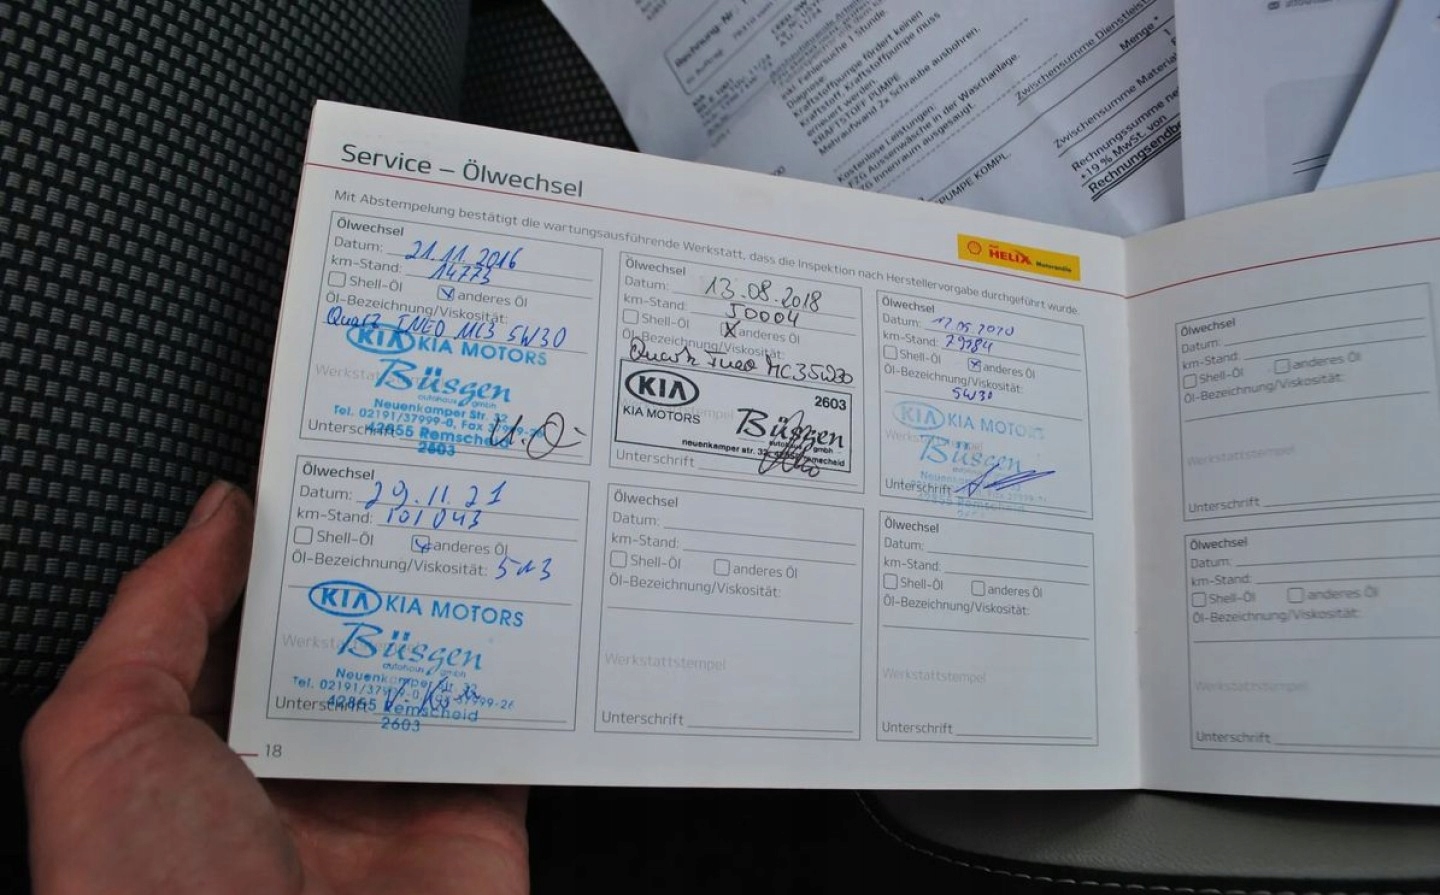 Rechnung Nr.:
inkl. Fehlersuche 1 Stunde.
Diagnose
Kraftstoffpumpe fördert keinen
Kraftstoff. Kraftstoffpumpe muss
erneuert werden.
KRAFTSTOFF PUMPE
Mehraufwand 2x Schraube ausbohren.
Kostenlose Leistungen:
FZG Aussenwäsche in der Waschanlage.
FZG Innenraum ausgesaugt.
Zwischensumme Dienstleist
Menge
PUMPE KOMPL.
Zwischensumme Material
Rechnungssumme ne
+19 % MwSt. von
Rechnungsendb
Service – Ölwechsel
Mit Abstempelung bestätigt die wartungsausführende Werkstatt, dass die Inspektion nach Herstellervorgabe durchgeführt wurde.
HELIX Motorenöle
Ölwechsel
Datum: 21.11.2016
km-Stand: 14773
Shell-Öl anderes Öl
Öl-Bezeichnung/Viskosität:
Quartz INEO MC3 5W30
KIA KIA MOTORS
Büsgen
autohaus gmbh
Neuenkamper Str. 32
Tel. 02191/37999-0, Fax 37999-26
42855 Remscheid
2603
Unterschrift
Ölwechsel
Datum: 13.08.2018
km-Stand: 50004
Shell-Öl anderes Öl
Öl-Bezeichnung/Viskosität:
Quartz Ineo MC3 5W30
KIA 2603
KIA MOTORS Büsgen
autohaus gmbh
neuenkamper str. 32 42855 remscheid
Unterschrift
Ölwechsel
Datum: 12.05.2020
km-Stand: 79784
Shell-Öl anderes Öl
Öl-Bezeichnung/Viskosität:
5W30
KIA KIA MOTORS
Büsgen
Unterschrift
Ölwechsel
Datum: 29.11.21
km-Stand: 101043
Shell-Öl anderes Öl
Öl-Bezeichnung/Viskosität: 5W3
KIA KIA MOTORS
Büsgen
autohaus gmbh
Neuenkamper Str. 32
Tel. 02191/37999-0, Fax 37999-26
42855 Remscheid
2603
Unterschrift
Ölwechsel
Datum:
km-Stand:
Shell-Öl anderes Öl
Öl-Bezeichnung/Viskosität:
Werkstattstempel
Unterschrift
Ölwechsel
Datum:
km-Stand:
Shell-Öl anderes Öl
Öl-Bezeichnung/Viskosität:
Werkstattstempel
Unterschrift
18
Ölwechsel
Datum:
km-Stand:
Shell-Öl anderes Öl
Öl-Bezeichnung/Viskosität:
Werkstattstempel
Unterschrift
Ölwechsel
Datum:
km-Stand:
Shell-Öl anderes Öl
Öl-Bezeichnung/Viskosität:
Werkstattstempel
Unterschrift